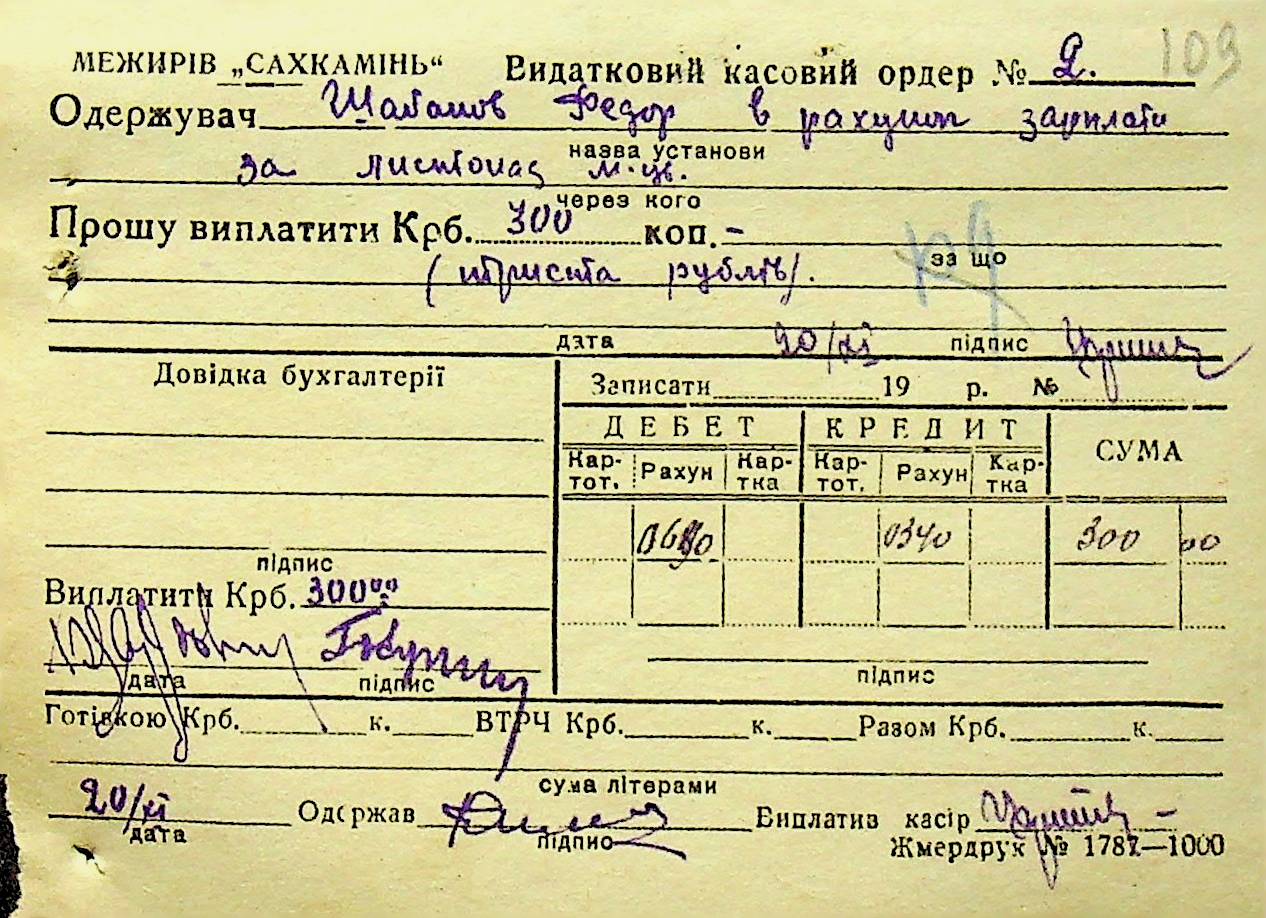 109
МЕЖИРІВ „САХКАМІНЬ“ Видатковий касовий ордер № 2.
Одержувач Шабанов Федор в рахунок зарплати
назва установи
за листопад м-ць.
через кого
Прошу виплатити Крб. 300 коп. –
за що
(триста рублів).
дата 20/XI підпис
Довідка бухгалтерії
Записати 19 р. №
ДЕБЕТ КРЕДИТ СУМА
Кар-тот. Рахун Кар-тка Кар-тот. Рахун Кар-тка
0340 300 00
підпис
Виплатити Крб. 300⁰⁰
дата підпис підпис
Готівкою Крб. к. ВТРЧ Крб. к. Разом Крб. к.
сума літерами
20/XI Одержав Виплатив касір
дата підпис
Жмердрук № 1787—1000